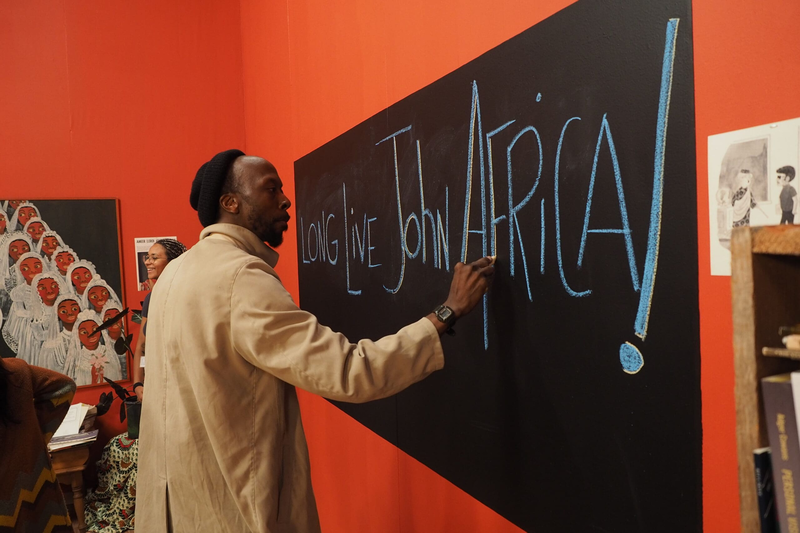 LONG LIVE John AFRICA!
PERSONAL